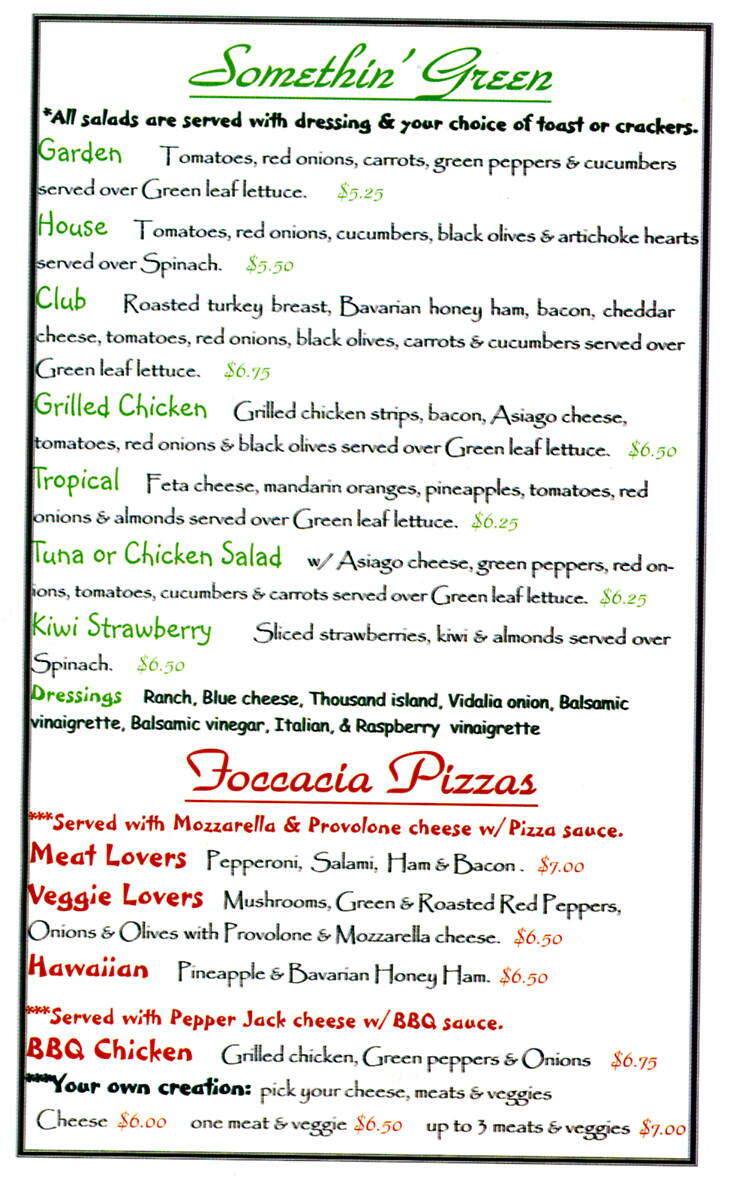 Somethin' Green
*All salads are served with dressing & your choice of toast or crackers.
Garden Tomatoes, red onions, carrots, green peppers & cucumbers
served over Green leaf lettuce. $5.25
House Tomatoes, red onions, cucumbers, black olives & artichoke hearts
served over Spinach. $5.50
Club Roasted turkey breast, Bavarian honey ham, bacon, cheddar
cheese, tomatoes, red onions, black olives, carrots & cucumbers served over
Green leaf lettuce. $6.75
Grilled Chicken Grilled chicken strips, bacon, Asiago cheese,
tomatoes, red onions & black olives served over Green leaf lettuce. $6.50
Tropical Feta cheese, mandarin oranges, pineapples, tomatoes, red
onions & almonds served over Green leaf lettuce. $6.25
Tuna or Chicken Salad w/ Asiago cheese, green peppers, red on-
ions, tomatoes, cucumbers & carrots served over Green leaf lettuce. $6.25
Kiwi Strawberry Sliced strawberries, kiwi & almonds served over
Spinach. $6.50
Dressings Ranch, Blue cheese, Thousand island, Vidalia onion, Balsamic
vinaigrette, Balsamic vinegar, Italian, & Raspberry vinaigrette
Foccacia Pizzas
***Served with Mozzarella & Provolone cheese w/ Pizza sauce.
Meat Lovers Pepperoni, Salami, Ham & Bacon . $7.00
Veggie Lovers Mushrooms, Green & Roasted Red Peppers,
Onions & Olives with Provolone & Mozzarella cheese. $6.50
Hawaiian Pineapple & Bavarian Honey Ham. $6.50
***Served with Pepper Jack cheese w/ BBQ sauce.
BBQ Chicken Grilled chicken, Green peppers & Onions $6.75
***Your own creation: pick your cheese, meats & veggies
Cheese $6.00 one meat & veggie $6.50 up to 3 meats & veggies $7.00